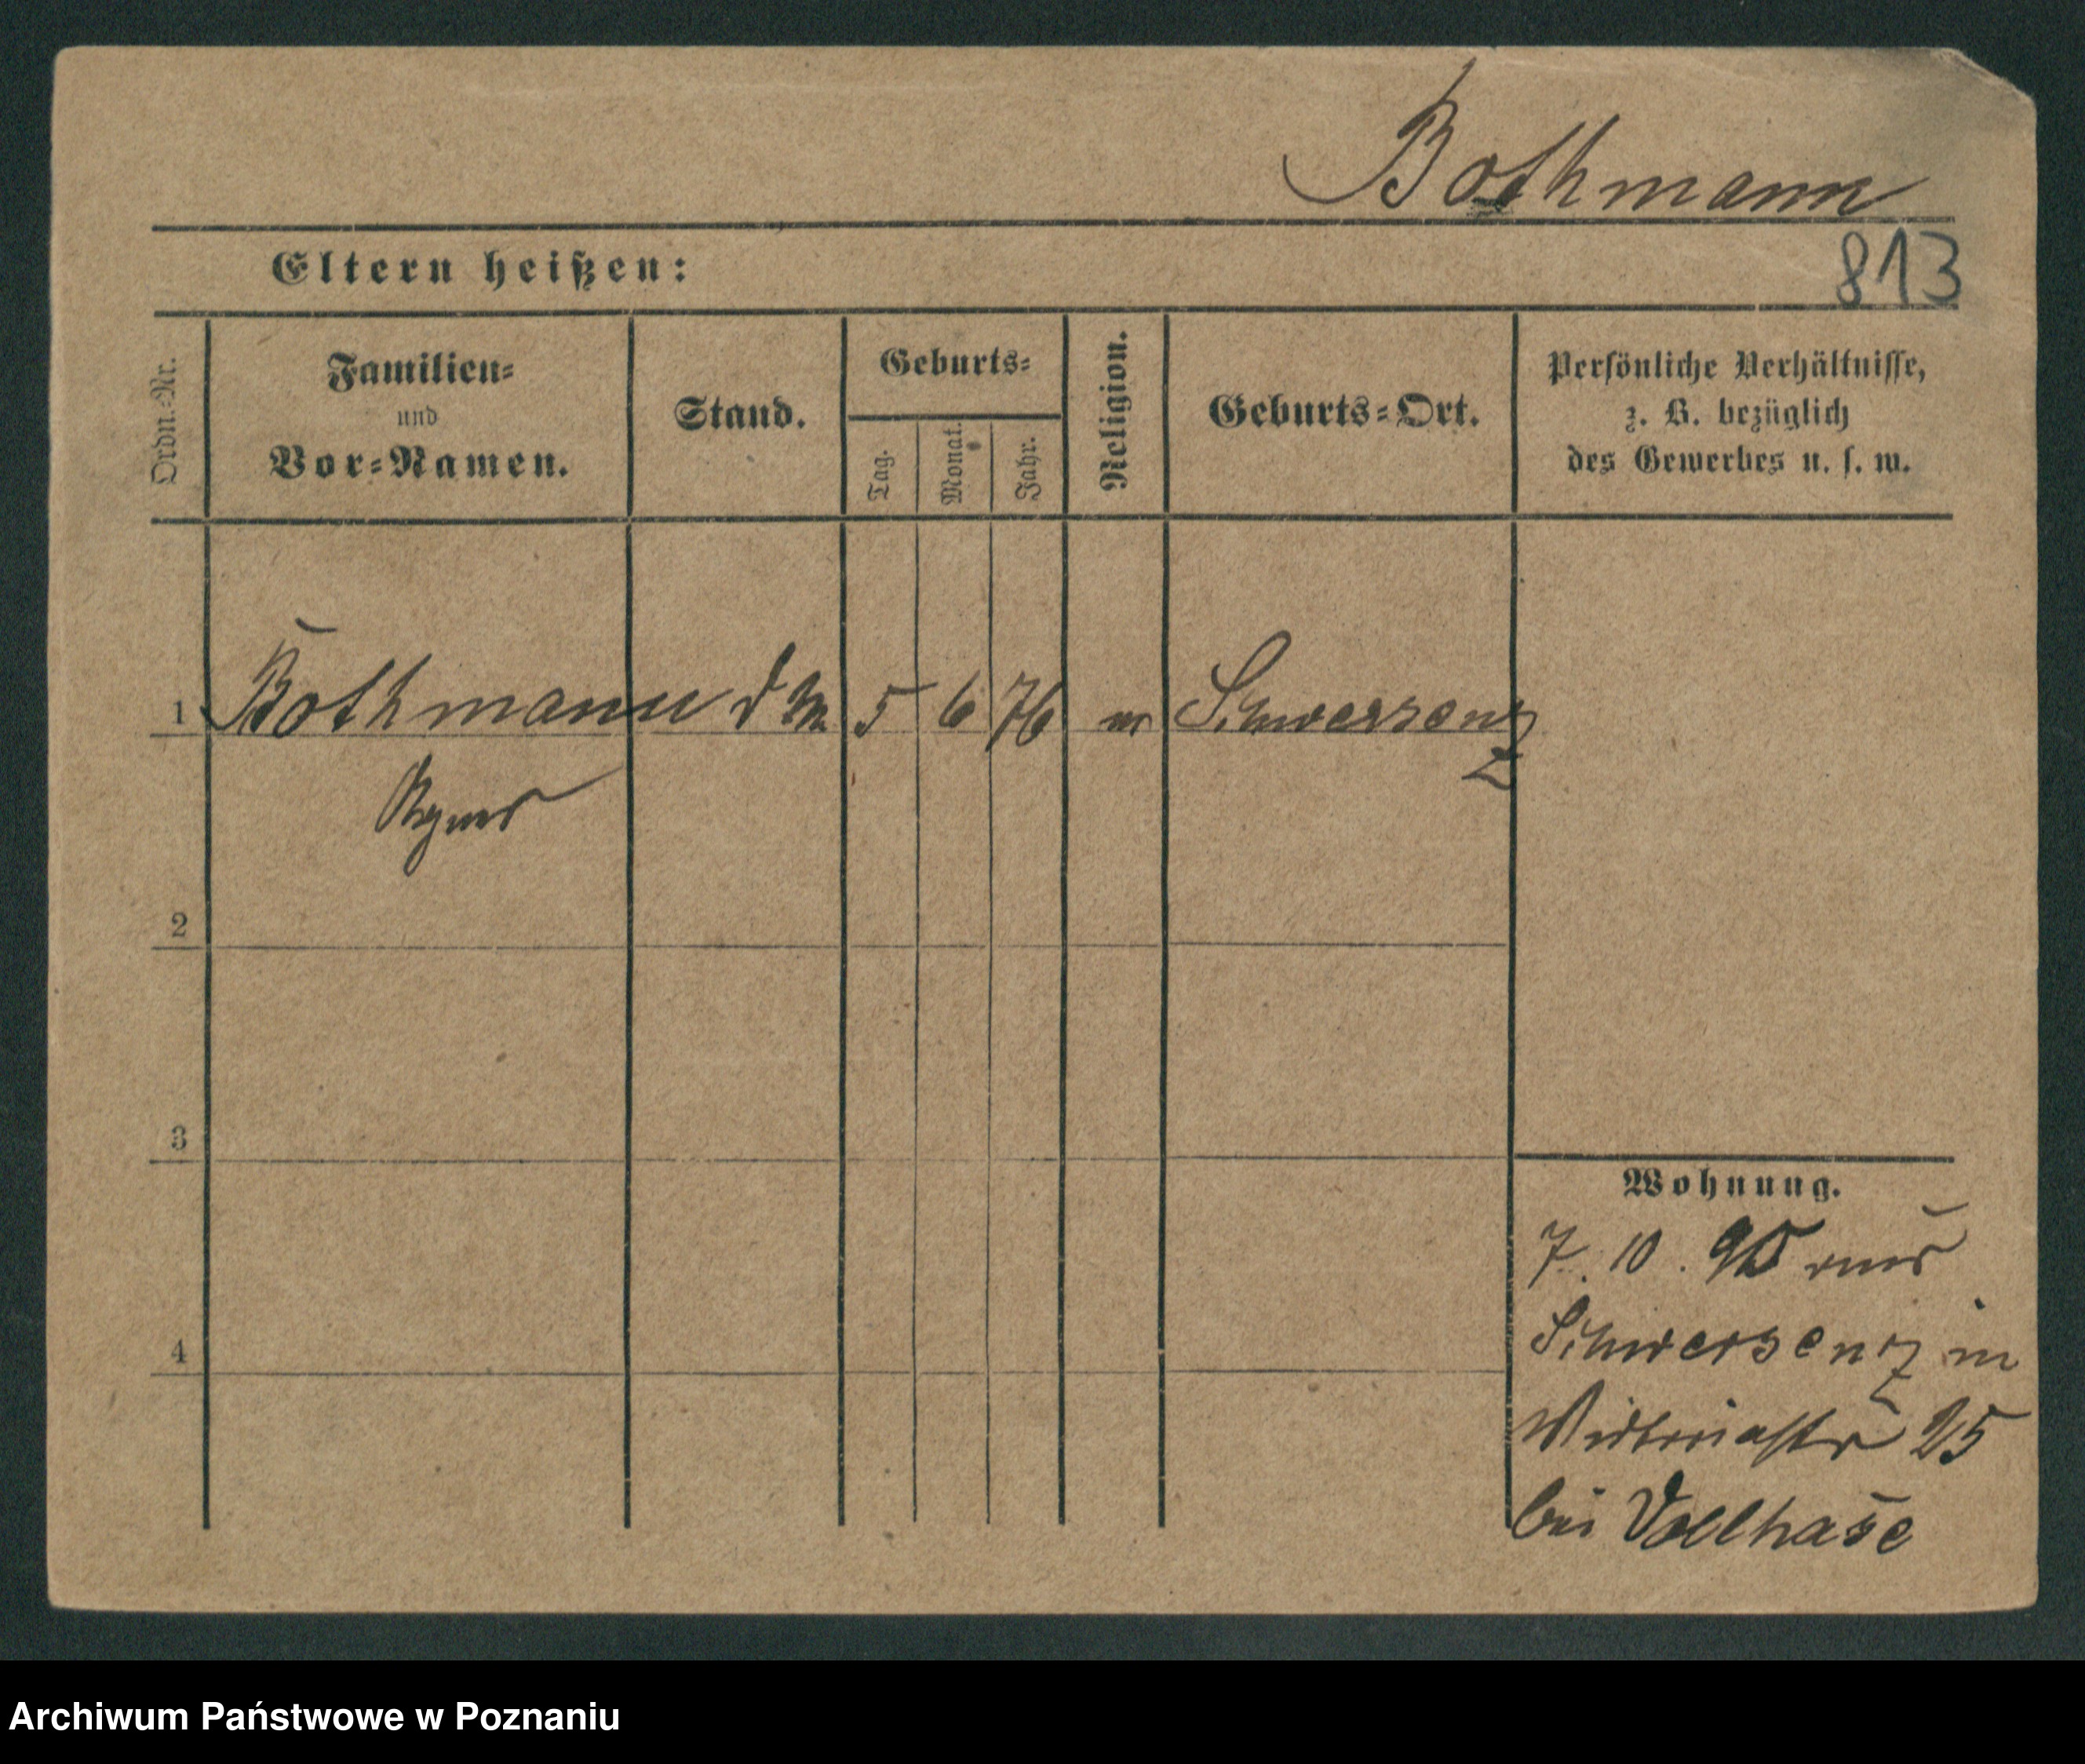 Bothmann
Eltern heißen:
813
Ordn.-Nr.
Familien-
und
Vor-Namen.
Stand.
Geburts-
Tag.
Monat.
Jahr.
Religion.
Geburts-Ort.
Persönliche Verhältnisse,
z. B. bezüglich
des Gewerbes u. s. w.
1 Bothmann d M 5 6 76 Schwersenz
Agnes
2
3
4
Wohnung.
7. 10. 95 aus
Schwersenz in
25
bei Vollhase
Archiwum Państwowe w Poznaniu